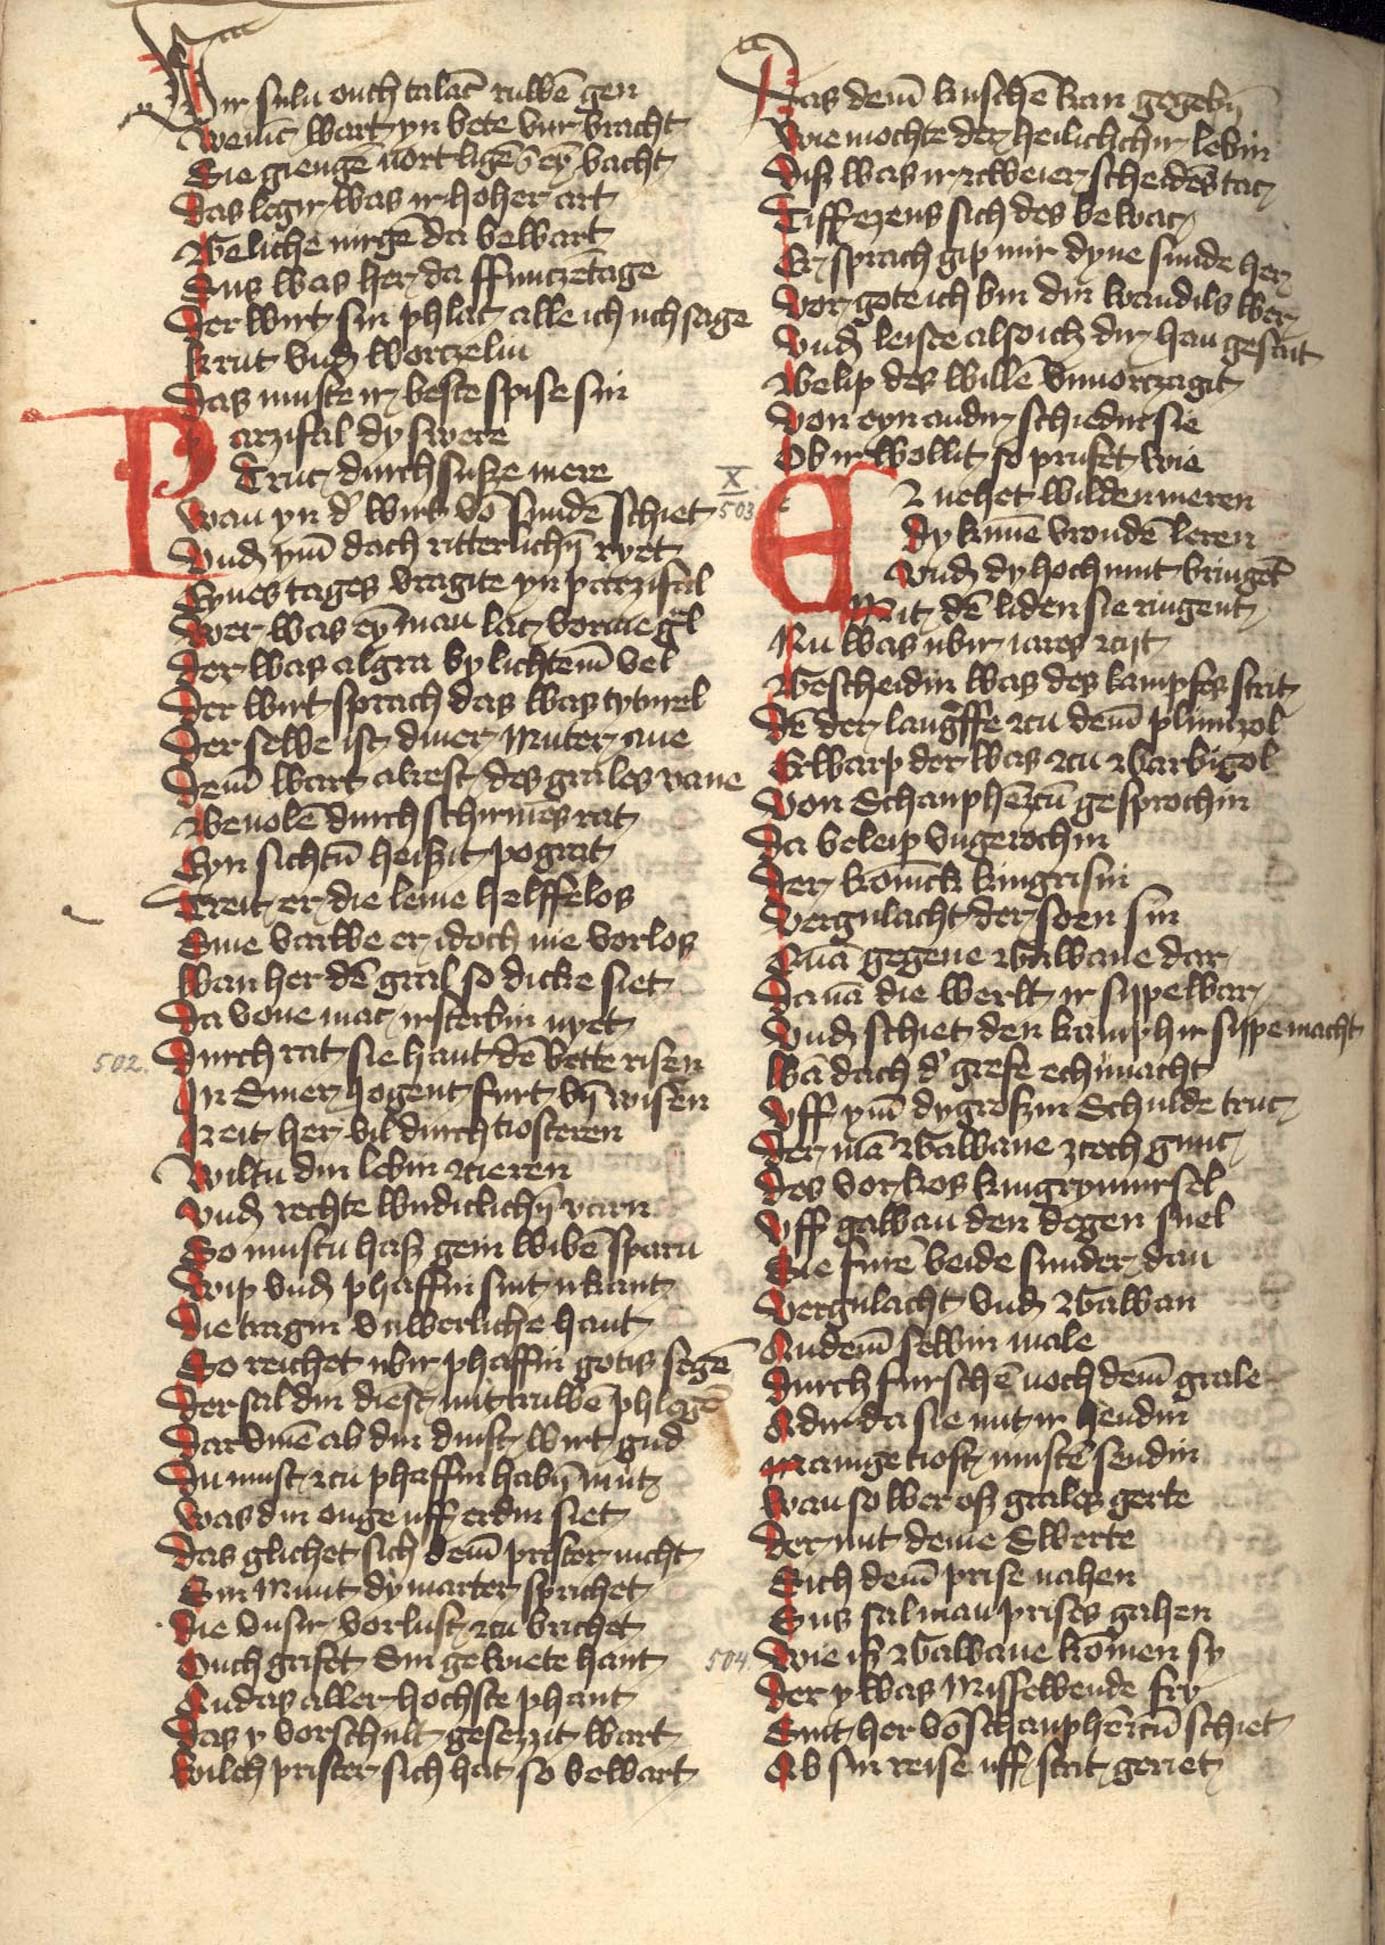 Wir suln ouch talāc ruwē gen
Wenīc wart yn bete vnr bracht
Sie giengē uort ligē vf eȳ bacht
Das legir was ir hoher art
Geliche nirgē da bewart
Sus was her da ffumczē tage
Der wirt sin phlac alle ich uch sage
Krut vnd worczelin
Das muste ir beste spise sin
Parzifal dy swere
Truc durch susze mere
Wan yn d' wirt vō sundē schiet
Vnd ym̄ doch ritterlichn̄ ryet
Eynes tages vragite yn parzifal
Wer was eȳ man lac vorme g̊l
Der was algra by lichtem̄ vel
Der wirt sprach das was tyturel
Der selbe ist diner muter ane
Dem̄ wart alrest des grales vane
Beuolē durch schirmes rat
Eyn sichtū heiszit pograt
Treit er die leme helffelos
Sine varwe er idoch nie vorlos
Wan her dē gral so dicke siet
Da vone mac irsterbin nyet
502.
Durch rat sie hant dē bette risen
In siner jogent furt vn̄ wisen
Reit her vil durch tiosteren
Wiltu din lebin zcieren
Vnd rechte wirdiclichn̄ varn
So mustu hasz gein wibē sparn
Wip vnd phaffin sint irkant
Die tragin vnwerliche hant
So reichet ubir phaffin gotis segē
Der sal din dienst mit truwē phlegē
Dar vmē ab din dinst wirt gud
Du must zcu phaffin habn̄ mut
Was din ouge uff erdin siet
Das glichet sich dem̄ prister nicht
Sin munt dy marter sprichet
Die vnsir vorlust zcu brichet
Ouch grifet sin gewiete hant
An das aller hochste phant
Das y vor schult gesezzit wart
Wilch prister sich hat so bewart
Das dem̄ kuschē kan gegebn̄
Wie mochte der heilichchir lebin
Disz was ir zcweier scheidēs tac
Tiffezens sich des bewac
Er sprach gip mir dyne sunde her
Vor gote ich bin din wandils wer
Vnd leiste also ich dir han gesait
Belip des willē vnuorczagit
Von eyn andir schiedin sie
Ob ir wollit so prufet wie
X
503
Ez nehet wilden meren
Dy kunnē vroudē leren
Vnd dy hochmut bringēt
Mit dē liden sie ringent
Nu was ubir iares zcijt
Gescheidin was des kampfes strit
Dē der langffe zcu dem̄ plimizol
Erwarp der was zcu Barbigol
Von Schanphēzcū gesprochin
Da beleip vngerochin
Der kōnick kingrisin
Vergulacht der soen sin
Quā gegene Gawane dar
Da nā die werlt ir sippe war
Vnd schiet den kamph ir sippe macht
Wā doch d' grefe echunacht
Vff ym̄ dy groszin schulde truc
Der mā Gawane zcech gnuc
Des vorkos kingrymursel
Vff gawan den degen snel
Sie furē beide sunder dan
Vergulacht vnd Gawan
An dem̄ selbin male
Durch furschē noch dem̄ grale
Adir da sie mit ir hendin
Manige tiost mustē sendin
Wan so wer osz grales gerte
Der mit deme swerte
Sich dem̄ prise nahen
Sus sal man prises gahen
504.
Wie isz Gawane kōmen sy
Der y was missewende fry
Sint her vō schanphēzcū schiet
Ab sin reise uff strit geriet